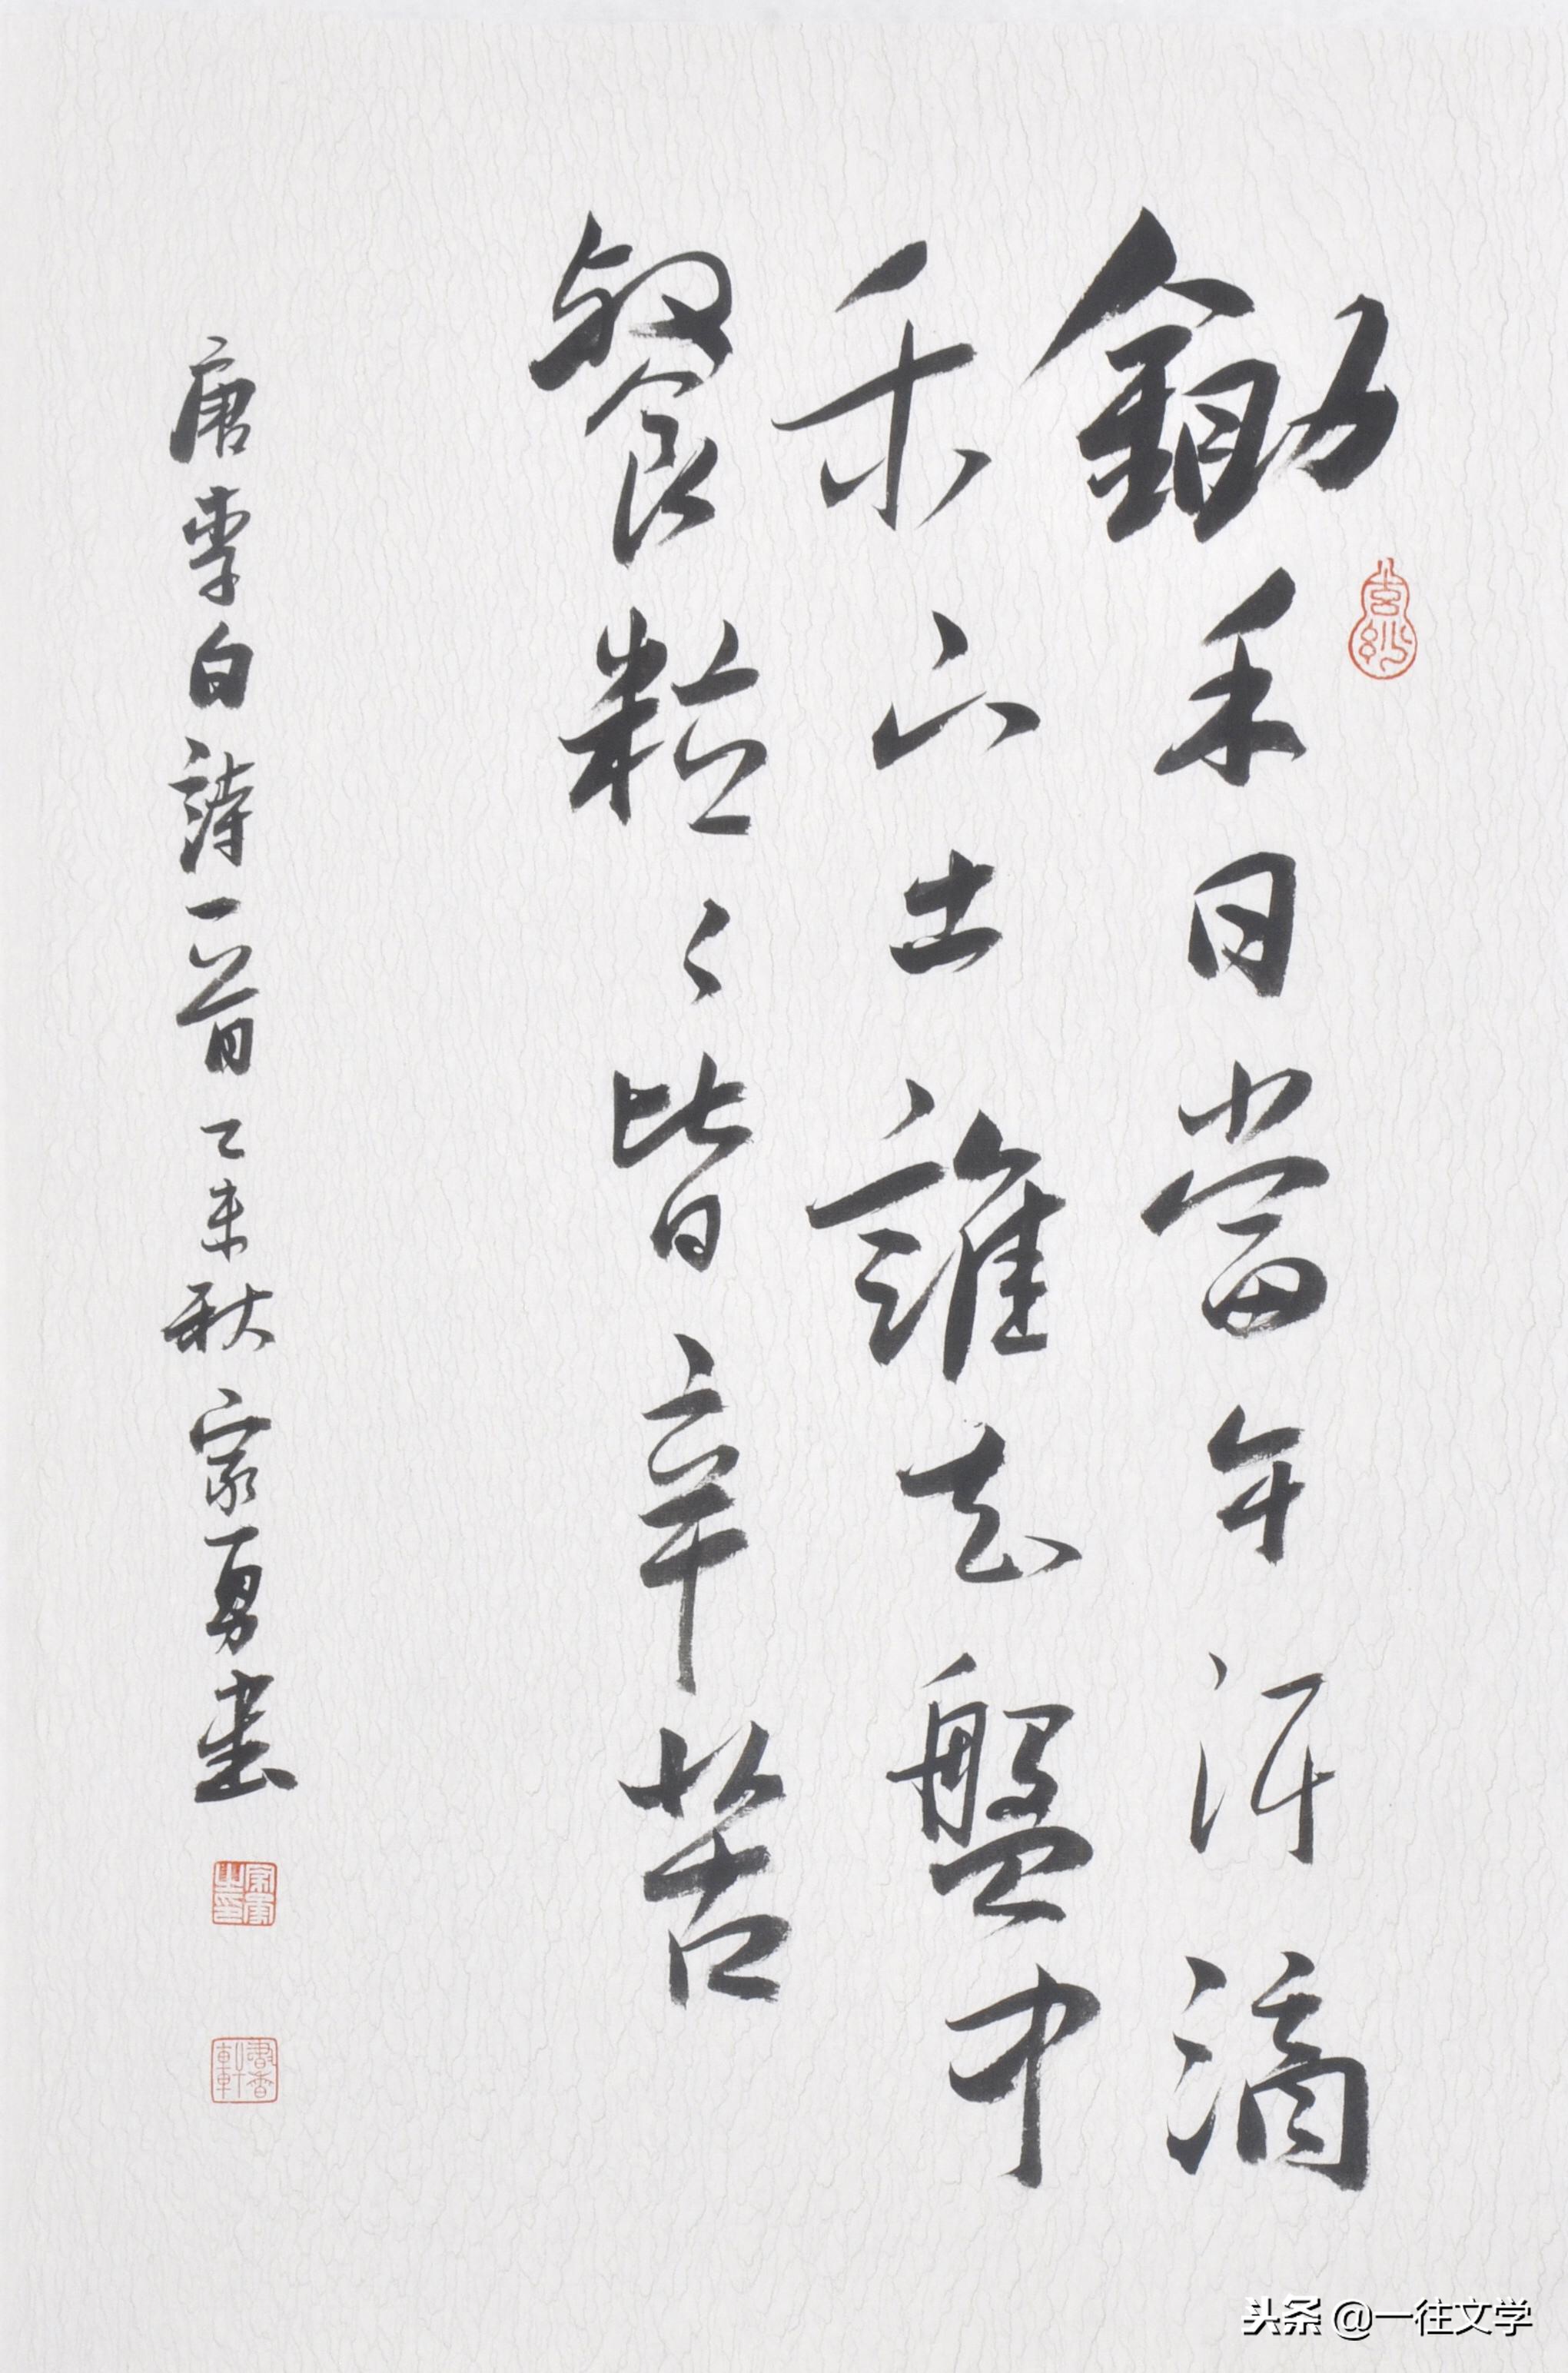 鋤禾日當午汗滴
禾下土誰知盤中
餐粒々皆辛苦
唐李白詩一首乙未秋家勇書
家勇之印
書香軒
头条 @一往文学